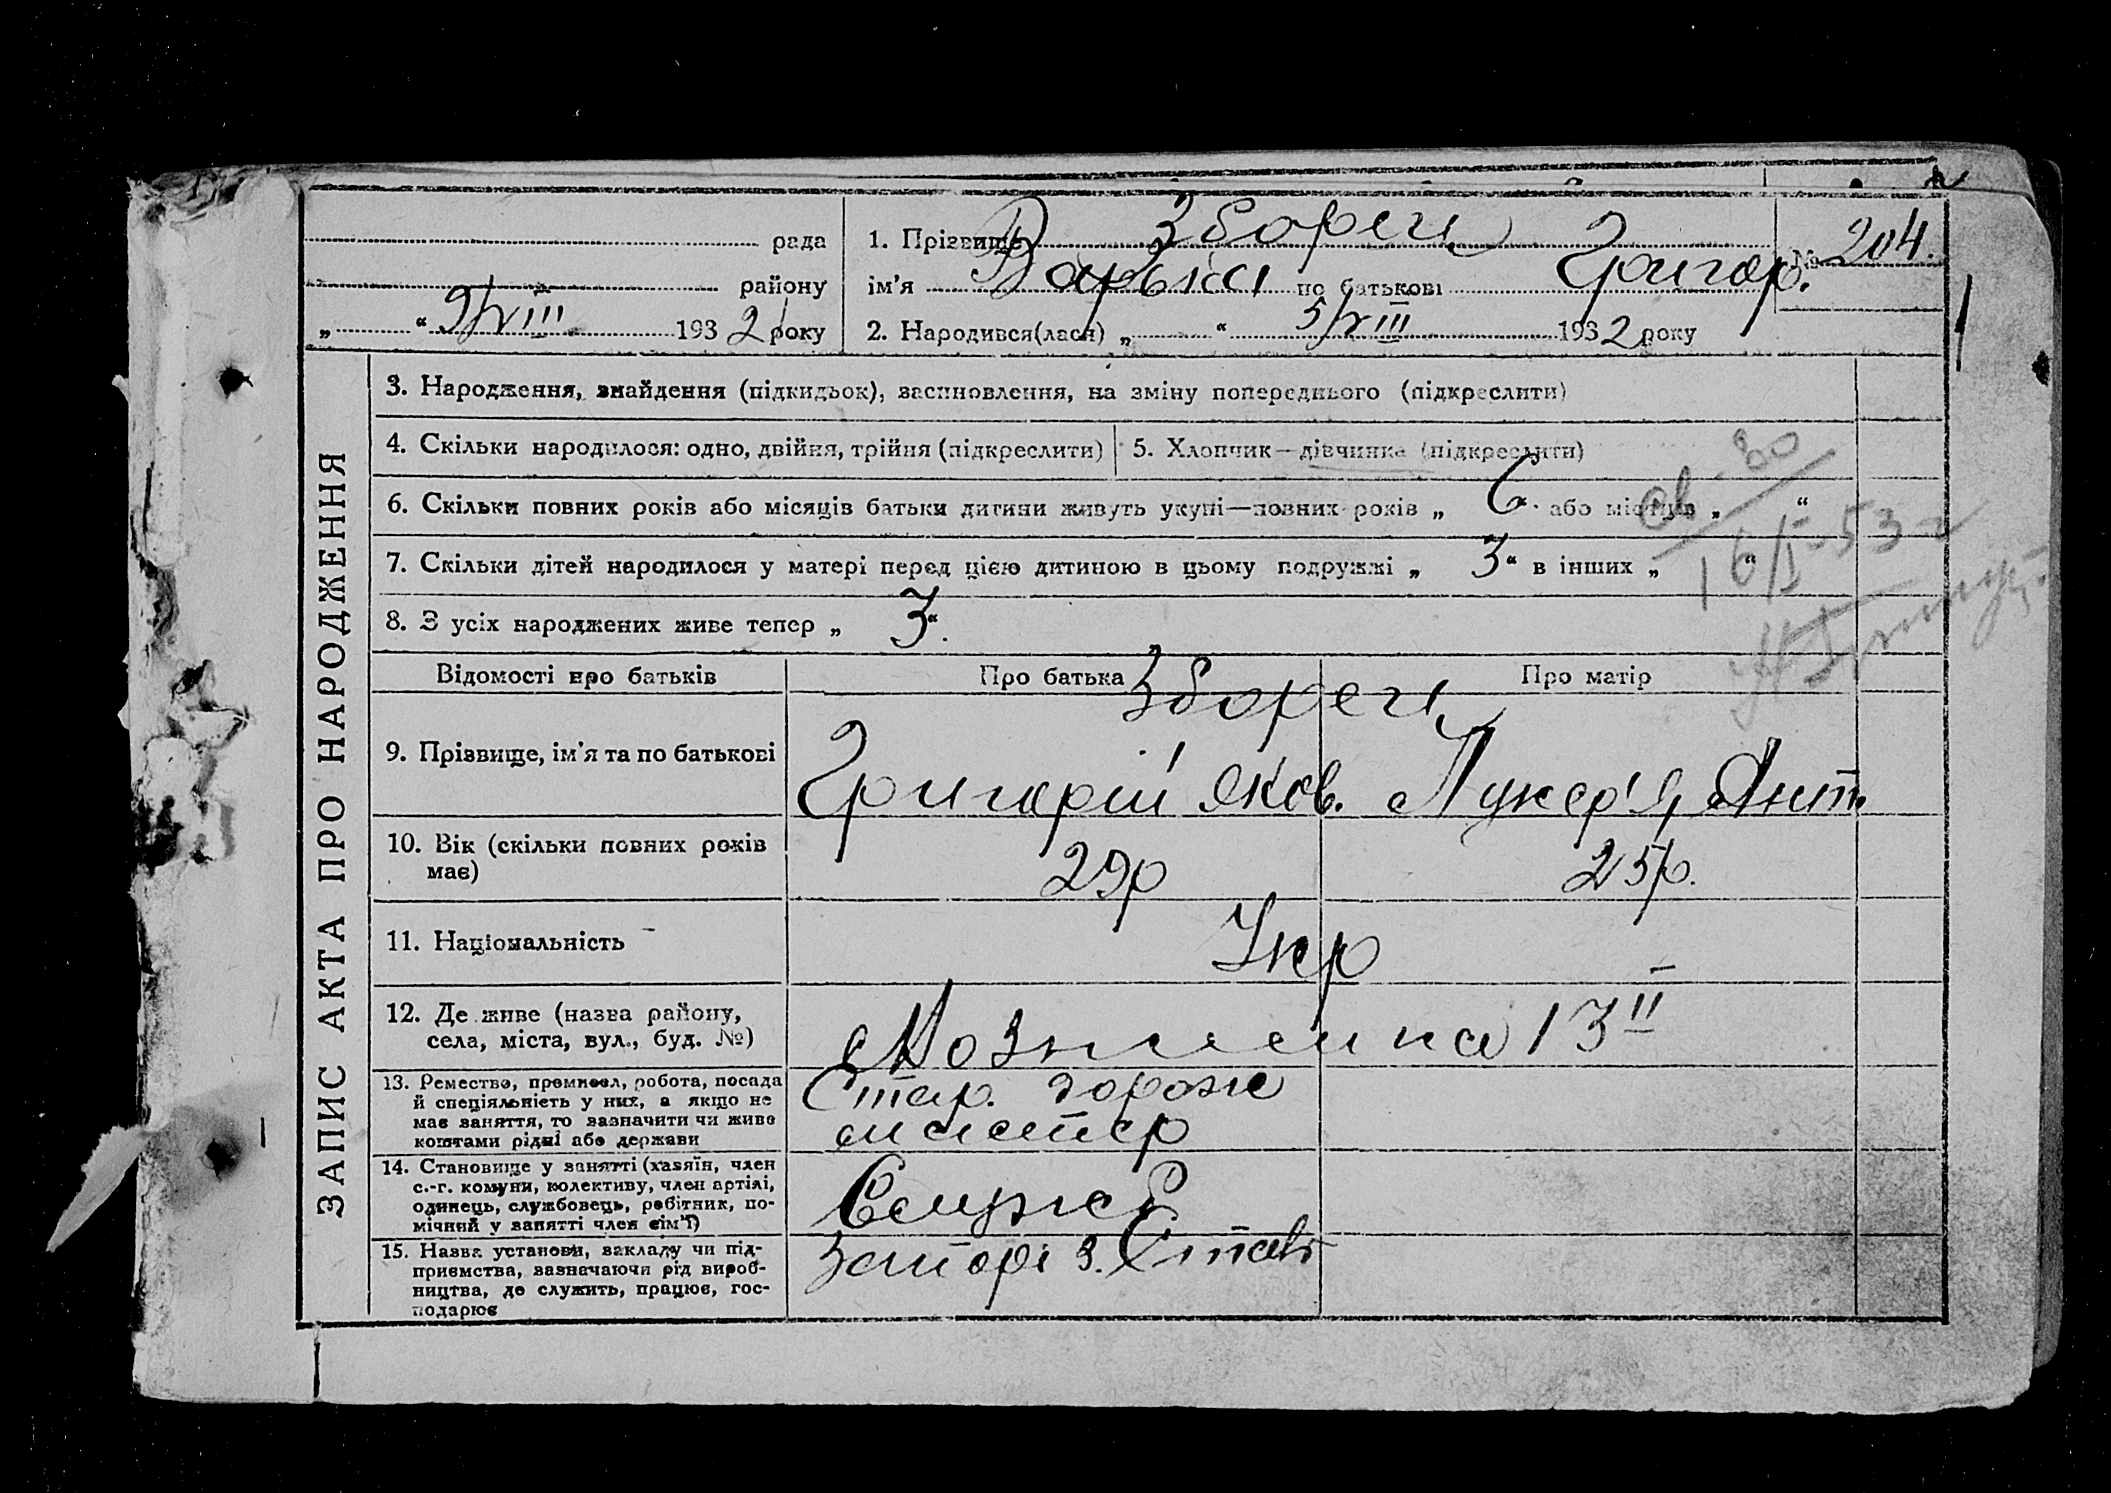 рада
району
„ “ 9/VIII 1932 року
1. Прізвище Зборец
ім'я Варвка по батькові Григор.
№ 204.
2. Народився(лася) „ “ 5/VIII 1932 року
ЗАПИС АКТА ПРО НАРОДЖЕННЯ
3. Народження, знайдення (підкидьок), всиновлення, на зміну попереднього (підкреслити)
4. Скільки народилося: одно, двійня, трійня (підкреслити)
5. Хлопчик — дівчинка (підкреслити)
6. Скільки повних років або місяців батьки дитини живуть укупі—повних років „ 6 “ або місяців „ “
7. Скільки дітей народилося у матері перед цією дитиною в цьому подружжі „ 3 “ в інших „ “
8. З усіх народжених живе тепер „ 3 “.
16/I-53
Відомості про батьків
Про батька
Про матір
9. Прізвище, ім'я та по батькові
Зборец
Григорій Яков. Лукер'я Ант.
10. Вік (скільки повних років
має)
29р
25р.
11. Національність
Укр
12. Де живе (назва району,
села, міста, вул., буд. №)
13
13. Ремество, промисел, робота, посада
й спеціяльність у них, а якщо не
має заняття, то зазначити чи живе
коштами рідні або держави
Стар. дорож
майстер
14. Становище у занятті (хазяїн, член
с.-г. комуни, колективу, член артілі,
одинець, службовець, робітник, по-
мічний у занятті член сім'ї)
Служб
15. Назва установи, закладу чи під-
приємства, зазначаючи рід вироб-
ництва, де служить, працює, гос-
подарює